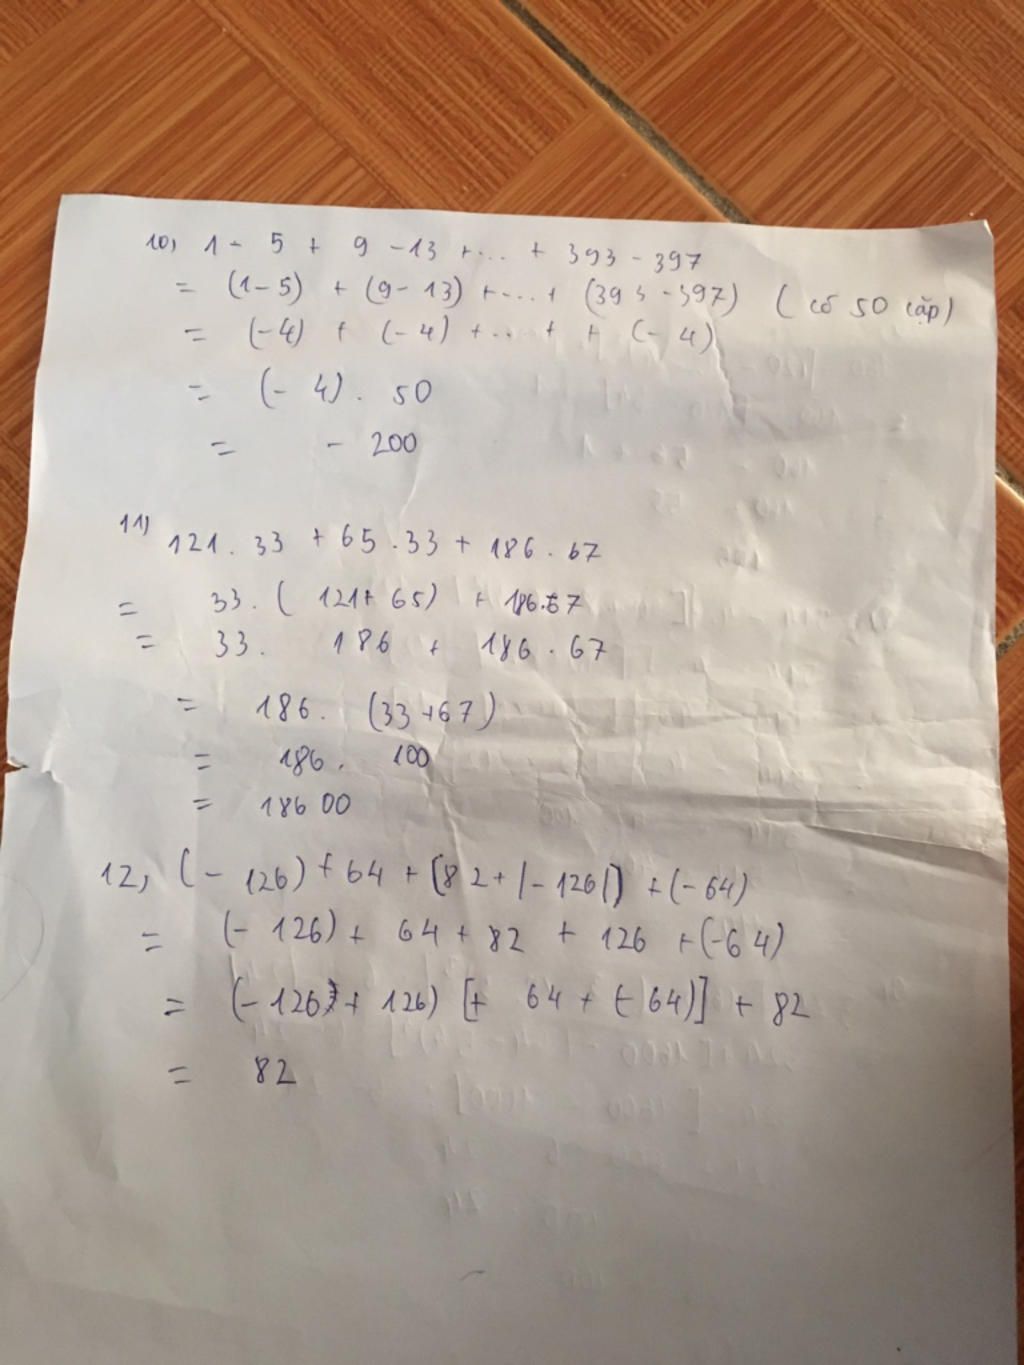 10, 1 - 5 + 9 - 13 + ... + 393 - 397
= (1 - 5) + (9 - 13) + ... + (393 - 397) (có 50 cặp)
= (- 4) + (- 4) + ... + + (- 4)
= (- 4) . 50
= - 200
11) 121 . 33 + 65 . 33 + 186 . 67
= 33 . ( 121 + 65) + 186.67
= 33 . 186 + 186 . 67
= 186 . (33 + 67)
= 186 . 100
= 186 00
12, (- 126) + 64 + [82 + |-126|] + (- 64)
= (- 126) + 64 + 82 + 126 + (-64)
= (- 126) + 126) [+ 64 + (- 64)] + 82
= 82